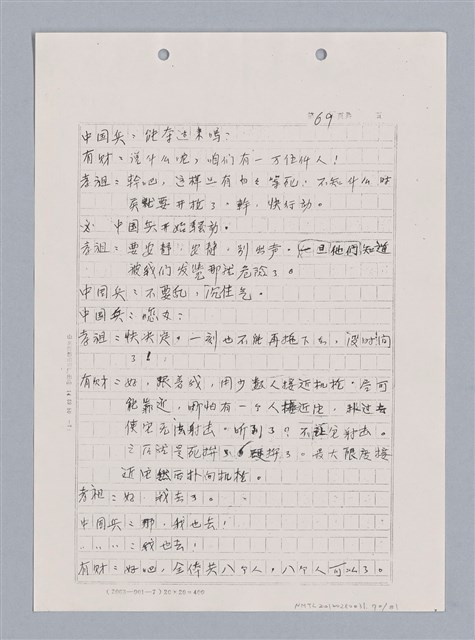 69
中国兵：能夺过来吗？
有财：说什么呢，咱们有一万伍仟人！
孝祖：幹吧，这样岂有白白等死，不知什么时
就要开枪了。幹，快行动。
※ 中国兵开始骚动。
孝祖：要安静，安静，别出声。一旦他們知道
被我们发览那就危险了。
中国兵：不要乱，沉住气。
中国兵：怎么办：
孝祖：快决定。一刻也不能再拖下去，没时间
了！
有财：好，跟着我，用少数人接近机枪。尽可
能靠近，哪怕有一个人接近它，扑过去
使它无法射击。听到了？不让它射击。
之后还是死拼了。最大限度接
近它然后扑向机枪。
孝祖：好 我去了。
中国兵：那，我也去！
〃〃〃：我也去！
有财：好吧，全体共八个人。八个人可以了。
(7003—001—7) 20×20=400